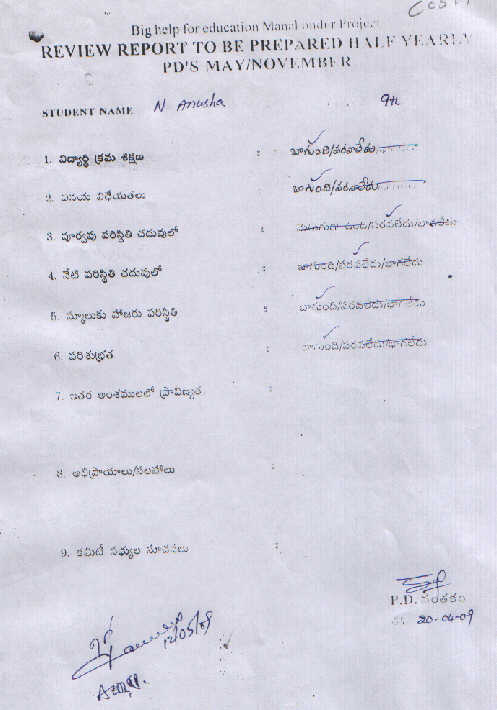 Big help for education Manalaonder Project
REVIEW REPORT TO BE PREPARED HALF YEARLY
PD'S MAY/NOVEMBER
STUDENT NAME N Anusha 9th
1. విద్యార్థి క్రమ శిక్షణ : బాగుంది/పరవాలేదు
2. వినయ విధేయతలు బాగుంది/పరవాలేదు
3. పూర్వపు పరిస్థితి చదువులో : బాగుంది/పరవలేదు/బాగలేదు
4. నేటి పరిస్థితి చదువులో : బాగుంది/పరవలేదు/బాగలేదు
5. స్కూలుకు హాజరు పరిస్థితి : బాగుంది/పరవలేదు/బాగలేదు
6. పరిశుభ్రత : బాగుంది/పరవలేదు/బాగలేదు
7. ఇతర అంశములలో ప్రావీణ్యత :
8. అభిప్రాయాలు/సలహాలు :
9. కమిటీ సభ్యుల సూచనలు :
P.D. సంతకం
20-04-09
12/05/09